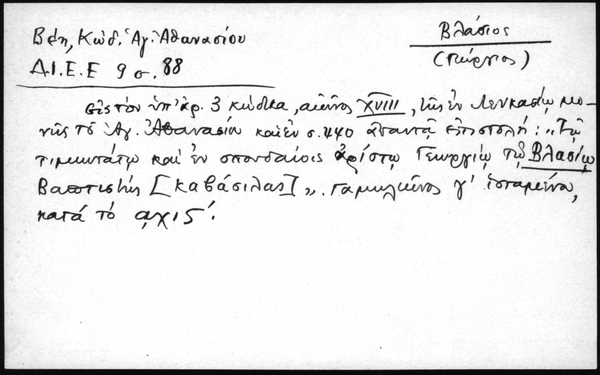 Βέη, Κώδ. Ἁγ. Ἀθανασίου
Δ.Ι.Ε.Ε 9 σ. 88
Βλάσιος
(Γεώργιος)
Εἰς τὸν ὑπ' ἀρ. 3 κώδικα, αἰῶνος XVIII, τῆς ἐν Λευκασίῳ μο-
νῆς τοῦ Ἁγ. Ἀθανασίου καὶ ἐν σ. 440 ἀπαντᾷ ἐπιστολή: „Τῷ
τιμιωτάτῳ καὶ ἐν σπουδαίοις ἀρίστῳ Γεωργίῳ τῷ Βλασίῳ
Βαπτιστὴς [Καβάσιλας]„. Γαμηλιῶνος γ' ἱσταμένου,
κατὰ τὸ ͵αχις΄.